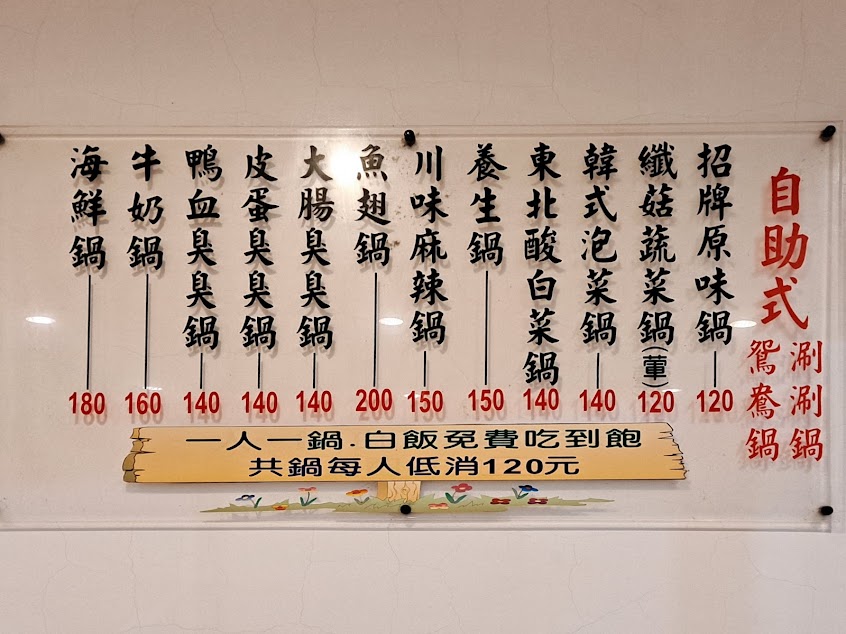 自助式
涮涮鍋
鴛鴦鍋
招牌原味鍋 120
纖菇蔬菜鍋(葷) 120
韓式泡菜鍋 140
東北酸白菜鍋 140
養生鍋 150
川味麻辣鍋 150
魚翅鍋 200
大腸臭臭鍋 140
皮蛋臭臭鍋 140
鴨血臭臭鍋 140
牛奶鍋 160
海鮮鍋 180
一人一鍋.白飯免費吃到飽
共鍋每人低消120元